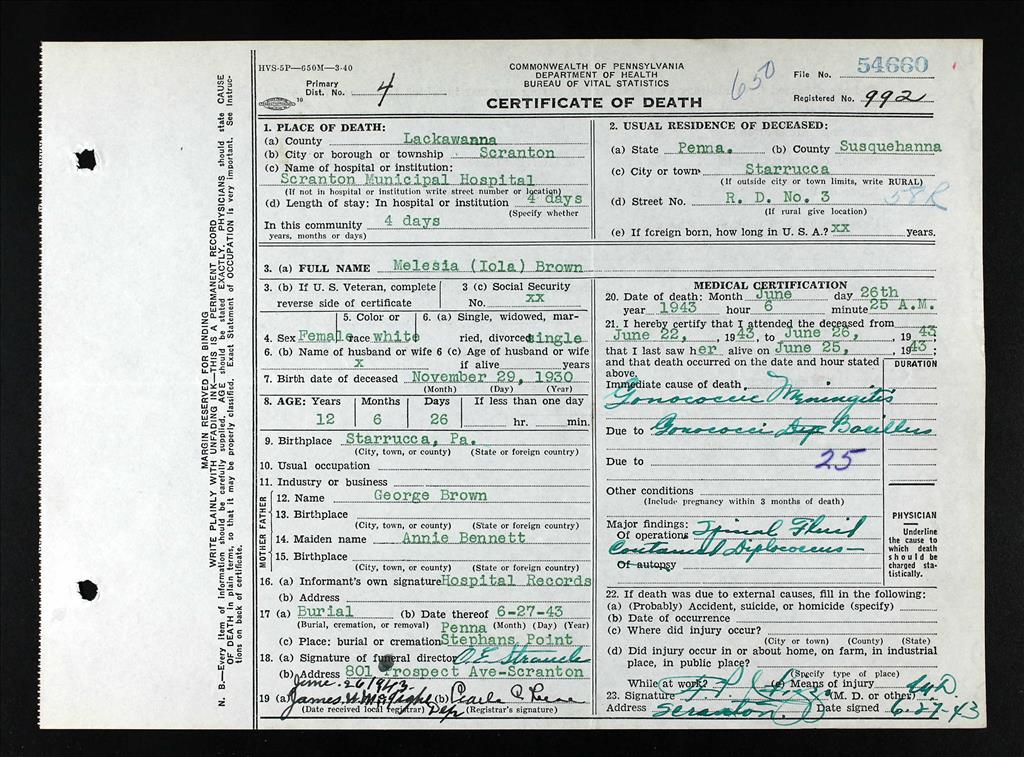 HVS-5P—650M—3-40
COMMONWEALTH OF PENNSYLVANIA
DEPARTMENT OF HEALTH
BUREAU OF VITAL STATISTICS
CERTIFICATE OF DEATH
Primary
Dist. No. 4
650
File No. 54660
Registered No. 992
MARGIN RESERVED FOR BINDING
WRITE PLAINLY WITH UNFADING INK—THIS IS A PERMANENT RECORD
N. B.—Every item of information should be carefully supplied. AGE should be stated EXACTLY. PHYSICIANS should state CAUSE
OF DEATH in plain terms, so that it may be properly classified. Exact Statement of OCCUPATION is very important. See Instruc-
tions on back of certificate.
1. PLACE OF DEATH:
(a) County Lackawanna
(b) City or borough or township Scranton
(c) Name of hospital or institution:
Scranton Municipal Hospital
(If not in hospital or institution write street number or location)
(d) Length of stay: In hospital or institution 4 days
(Specify whether
In this community 4 days
years, months or days)
2. USUAL RESIDENCE OF DECEASED:
(a) State Penna. (b) County Susquehanna
(c) City or town Starrucca
(If outside city or town limits, write RURAL)
(d) Street No. R. D. No. 3 58R
(If rural give location)
(e) If foreign born, how long in U. S. A.? xx years.
3. (a) FULL NAME Melesia (Iola) Brown
3. (b) If U. S. Veteran, complete
reverse side of certificate
3 (c) Social Security
No. xx
4. Sex Female
5. Color or
race white
6. (a) Single, widowed, mar-
ried, divorced single
6. (b) Name of husband or wife x
6 (c) Age of husband or wife
if alive years
7. Birth date of deceased November 29, 1930
(Month) (Day) (Year)
8. AGE: Years Months Days If less than one day
12 6 26 hr. min.
9. Birthplace Starrucca, Pa.
(City, town, or county) (State or foreign country)
10. Usual occupation
11. Industry or business
FATHER
12. Name George Brown
13. Birthplace
(City, town, or county) (State or foreign country)
MOTHER
14. Maiden name Annie Bennett
15. Birthplace
(City, town, or county) (State or foreign country)
16. (a) Informant's own signature Hospital Records
(b) Address
17 (a) Burial (b) Date thereof 6-27-43
(Burial, cremation, or removal) (Month) (Day) (Year)
Penna
(c) Place: burial or cremation Stephans Point
18. (a) Signature of funeral director O. E.
(b) Address 801 Prospect Ave-Scranton
June 26 1943
19 (a) James (b)
(Date received local registrar) Dep (Registrar's signature)
MEDICAL CERTIFICATION
20. Date of death: Month June day 26th
year 1943 hour 6 minute 25 A.M.
21. I hereby certify that I attended the deceased from
June 22, 1943, to June 26, 1943
that I last saw her alive on June 25, 1943;
and that death occurred on the date and hour stated
above.
DURATION
Immediate cause of death
Gonococcic Meningitis
Due to Gonococci Dep Bacillus
Due to 25
Other conditions
(Include pregnancy within 3 months of death)
Major findings: Spinal Fluid
Of operations
Contained Diplococcus—
Of autopsy
PHYSICIAN
Underline
the cause to
which death
should be
charged sta-
tistically.
22. If death was due to external causes, fill in the following:
(a) (Probably) Accident, suicide, or homicide (specify)
(b) Date of occurrence
(c) Where did injury occur?
(City or town) (County) (State)
(d) Did injury occur in or about home, on farm, in industrial
place, in public place?
(Specify type of place)
While at work? (e) Means of injury
23. Signature (M. D. or other) M.D.
Address Scranton Date signed 6-27-43